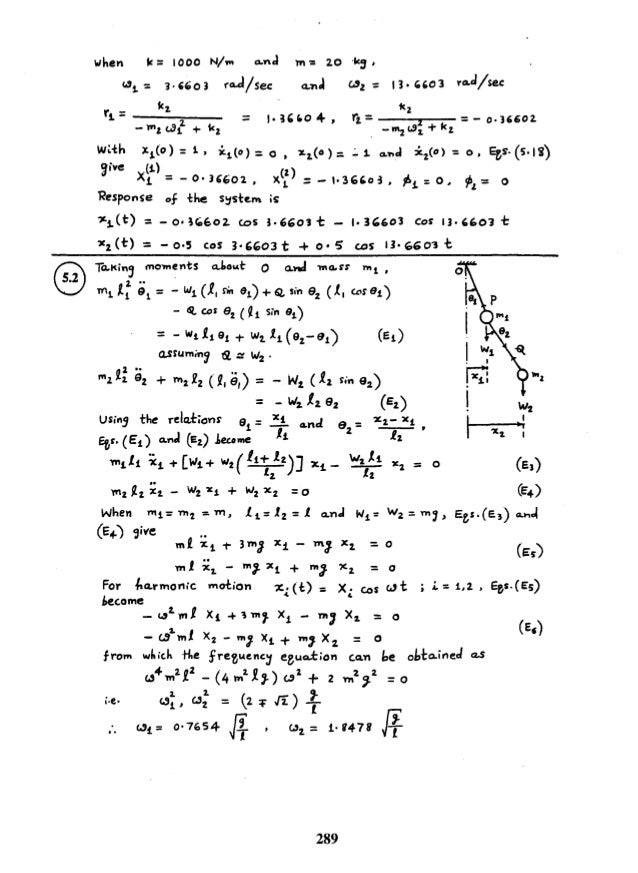 when k = 1000 N/m and m = 20 kg,
ω₁ = 3.6603 rad/sec and ω₂ = 13.6603 rad/sec
r₁ = k₂ / (-m₂ ω₁² + k₂) = 1.36604, r₂ = k₂ / (-m₂ ω₂² + k₂) = -0.36602
With x₁(0) = 1, ẋ₁(0) = 0, x₂(0) = -1 and ẋ₂(0) = 0, Eqs. (5.18)
give X₁⁽¹⁾ = -0.36602, X₁⁽²⁾ = -1.36603, φ₁ = 0, φ₂ = 0
Response of the system is
x₁(t) = -0.36602 cos 3.6603 t - 1.36603 cos 13.6603 t
x₂(t) = -0.5 cos 3.6603 t + 0.5 cos 13.6603 t
5.2 Taking moments about O and mass m₁,
m₁ l₁² θ̈₁ = -W₁ (l₁ sin θ₁) + Q sin θ₂ (l₁ cos θ₁)
- Q cos θ₂ (l₁ sin θ₁)
= -W₁ l₁ θ₁ + W₂ l₁ (θ₂-θ₁) (E₁)
assuming Q ≃ W₂.
m₂ l₂² θ̈₂ + m₂ l₂ (l₁ θ̈₁) = -W₂ (l₂ sin θ₂)
= -W₂ l₂ θ₂ (E₂)
Using the relations θ₁ = x₁/l₁ and θ₂ = (x₂-x₁)/l₂,
Eqs. (E₁) and (E₂) become
m₁ l₁ ẍ₁ + [W₁ + W₂ ((l₁+l₂)/l₂)] x₁ - (W₂ l₁/l₂) x₂ = 0 (E₃)
m₂ l₂ ẍ₂ - W₂ x₁ + W₂ x₂ = 0 (E₄)
When m₁ = m₂ = m, l₁ = l₂ = l and W₁ = W₂ = mg, Eqs. (E₃) and
(E₄) give
ml ẍ₁ + 3mg x₁ - mg x₂ = 0
ml ẍ₂ - mg x₁ + mg x₂ = 0 (E₅)
For harmonic motion xᵢ(t) = Xᵢ cos ωt ; i = 1,2, Eqs. (E₅)
become
-ω² ml X₁ + 3mg X₁ - mg X₂ = 0
-ω² ml X₂ - mg X₁ + mg X₂ = 0 (E₆)
from which the frequency equation can be obtained as
ω⁴ m² l² - (4 m² l g) ω² + 2 m² g² = 0
i.e. ω₁², ω₂² = (2 ∓ √2) g/l
∴ ω₁ = 0.7654 √(g/l), ω₂ = 1.8478 √(g/l)
O
θ₁
P
m₁
θ₂
W₁
Q
x₁
m₂
W₂
x₂
289